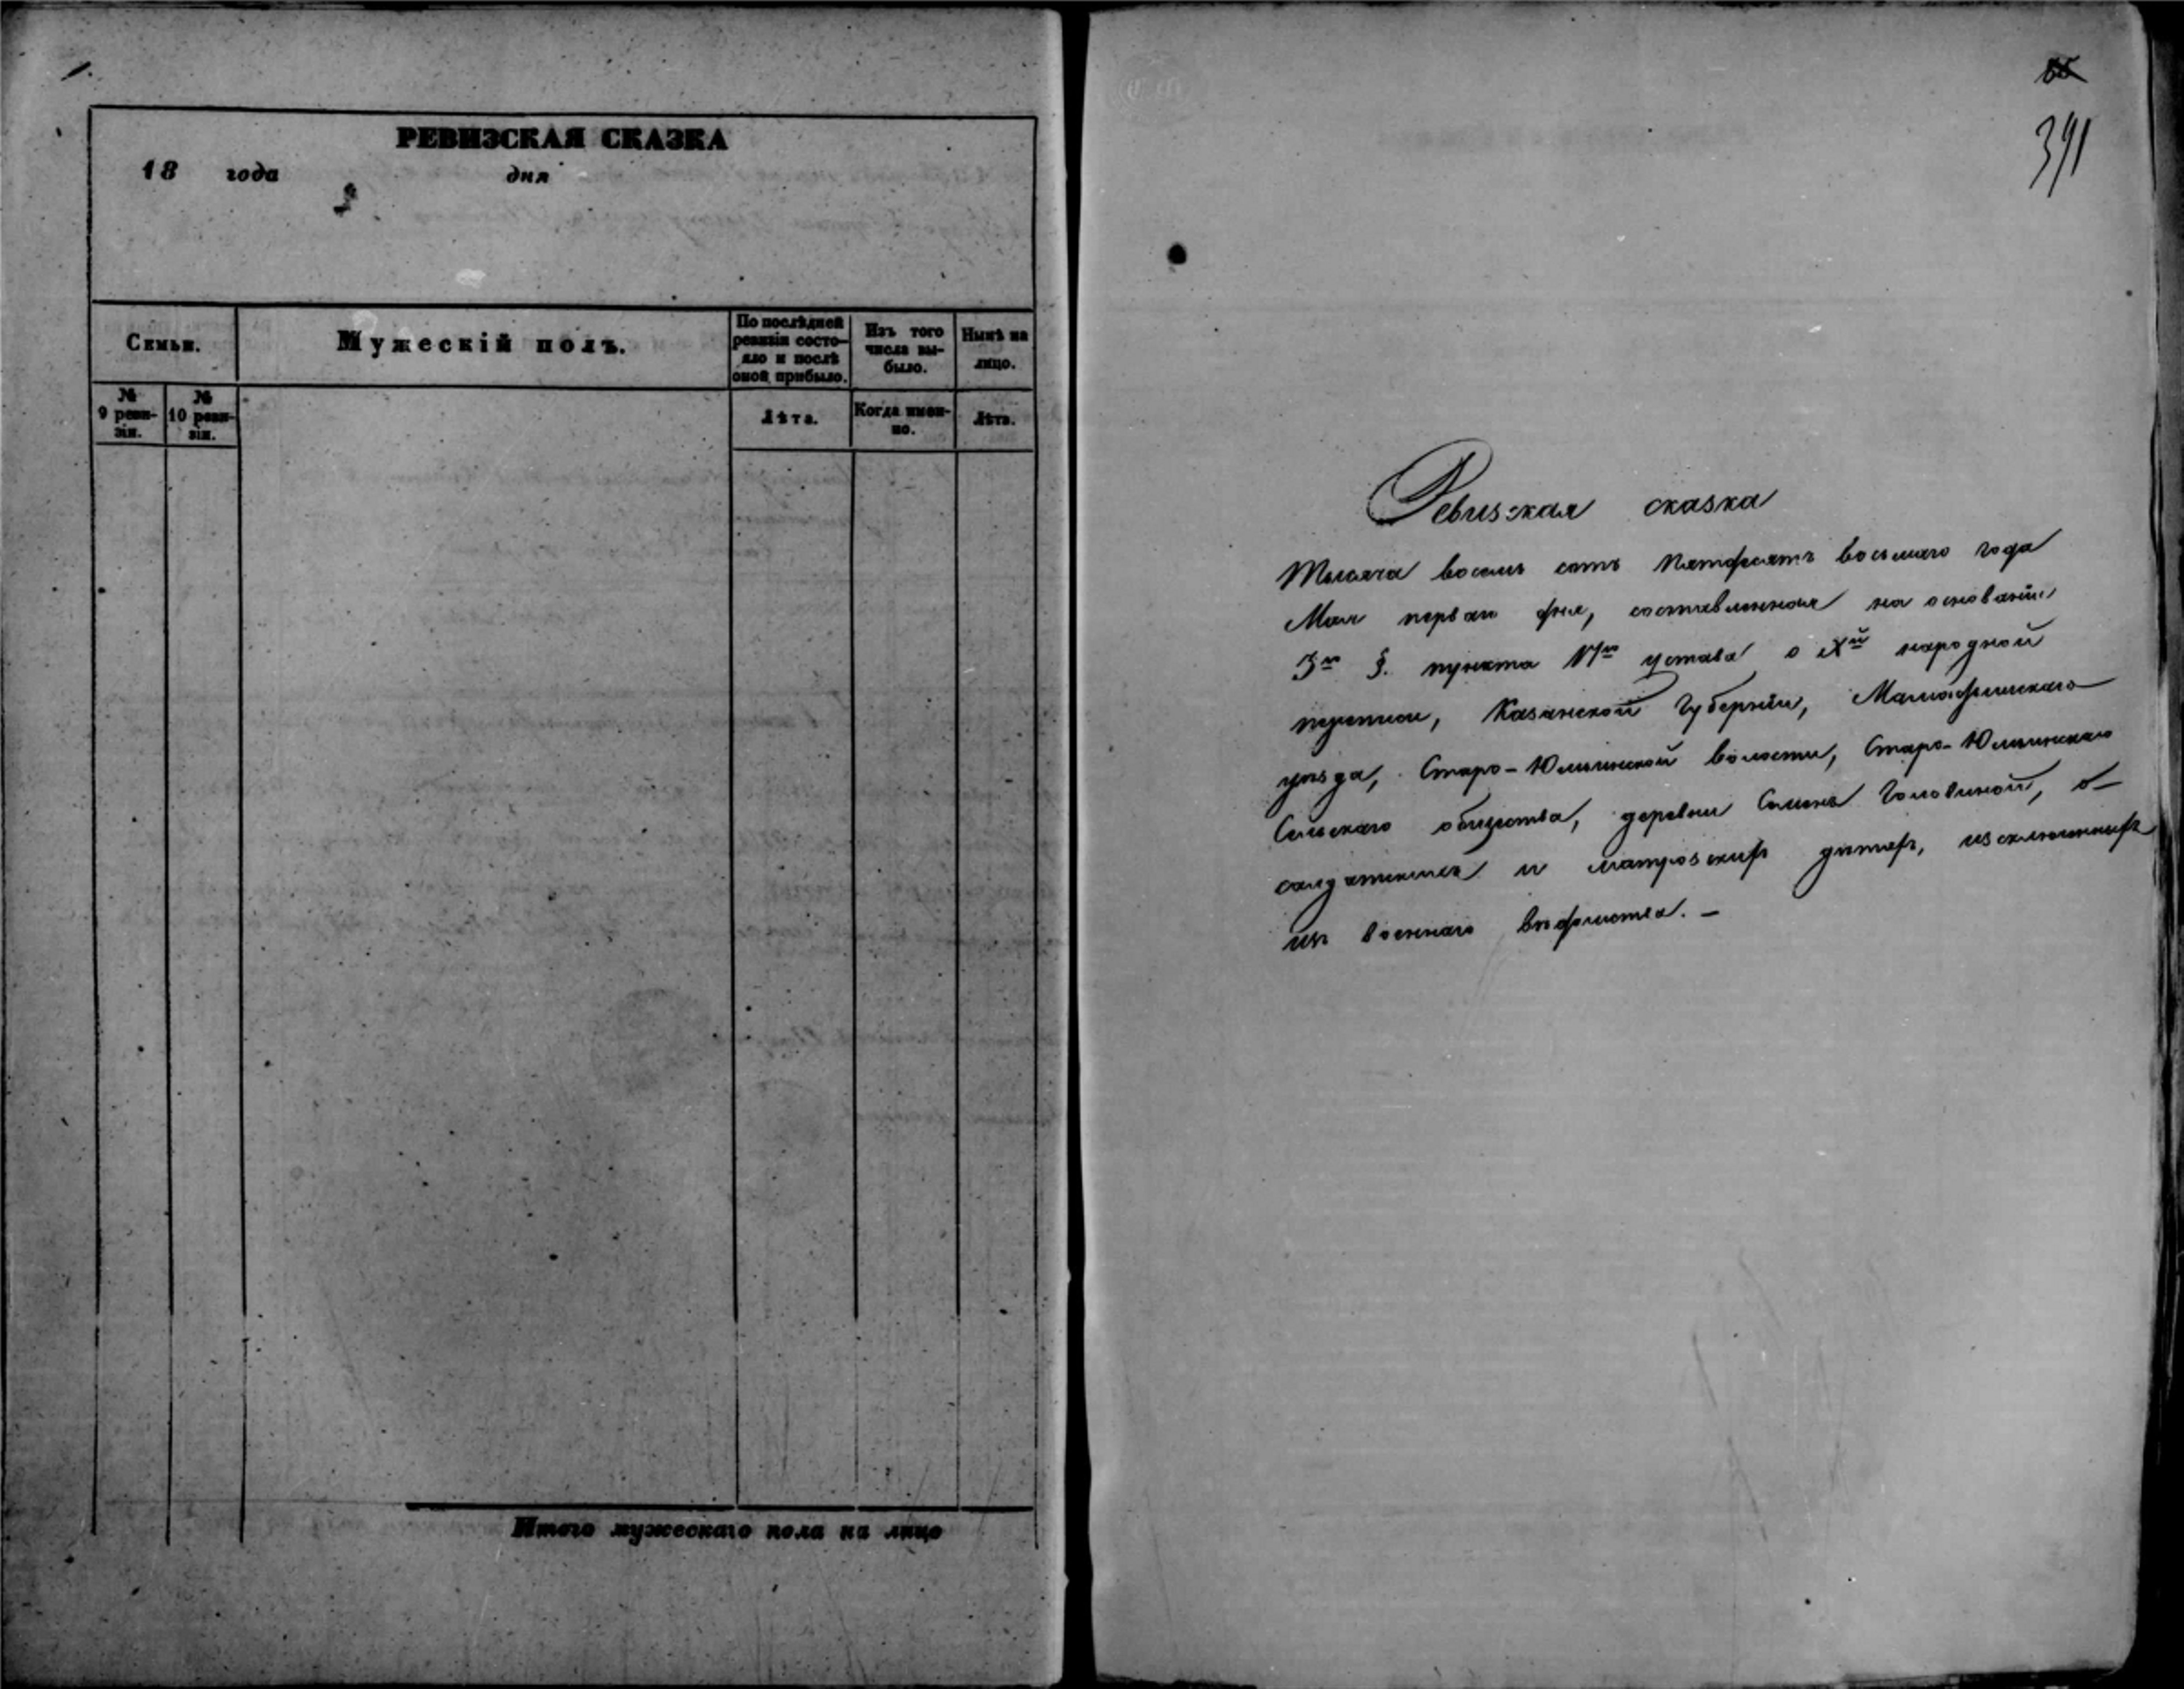 РЕВИЗСКАЯ СКАЗКА
18 года дня
Семьи.
Мужескій полъ.
По послѣдней ревизіи состояло и послѣ оной прибыло.
Изъ того числа выбыло.
Нынѣ на лицо.
№ 9 ревизіи.
№ 10 ревизіи.
Лѣта.
Когда именно.
Лѣта.
Итого мужескаго пола на лицо
391
Ревизская сказка
Тысяча восемь сотъ пятдесятъ восьмаго года
Мая перваго дня, составленная на основаніи
3го §. пункта устава о Xй народной
переписи, Казанской Губерніи, Мамадышскаго
уѣзда, Старо-Юмьинской волости, Старо-Юмьинскаго
Сельскаго общества, деревни Головиной, о
солдатскихъ и матрозскихъ дѣтяхъ, изключенныхъ
изъ военнаго вѣдомства. —